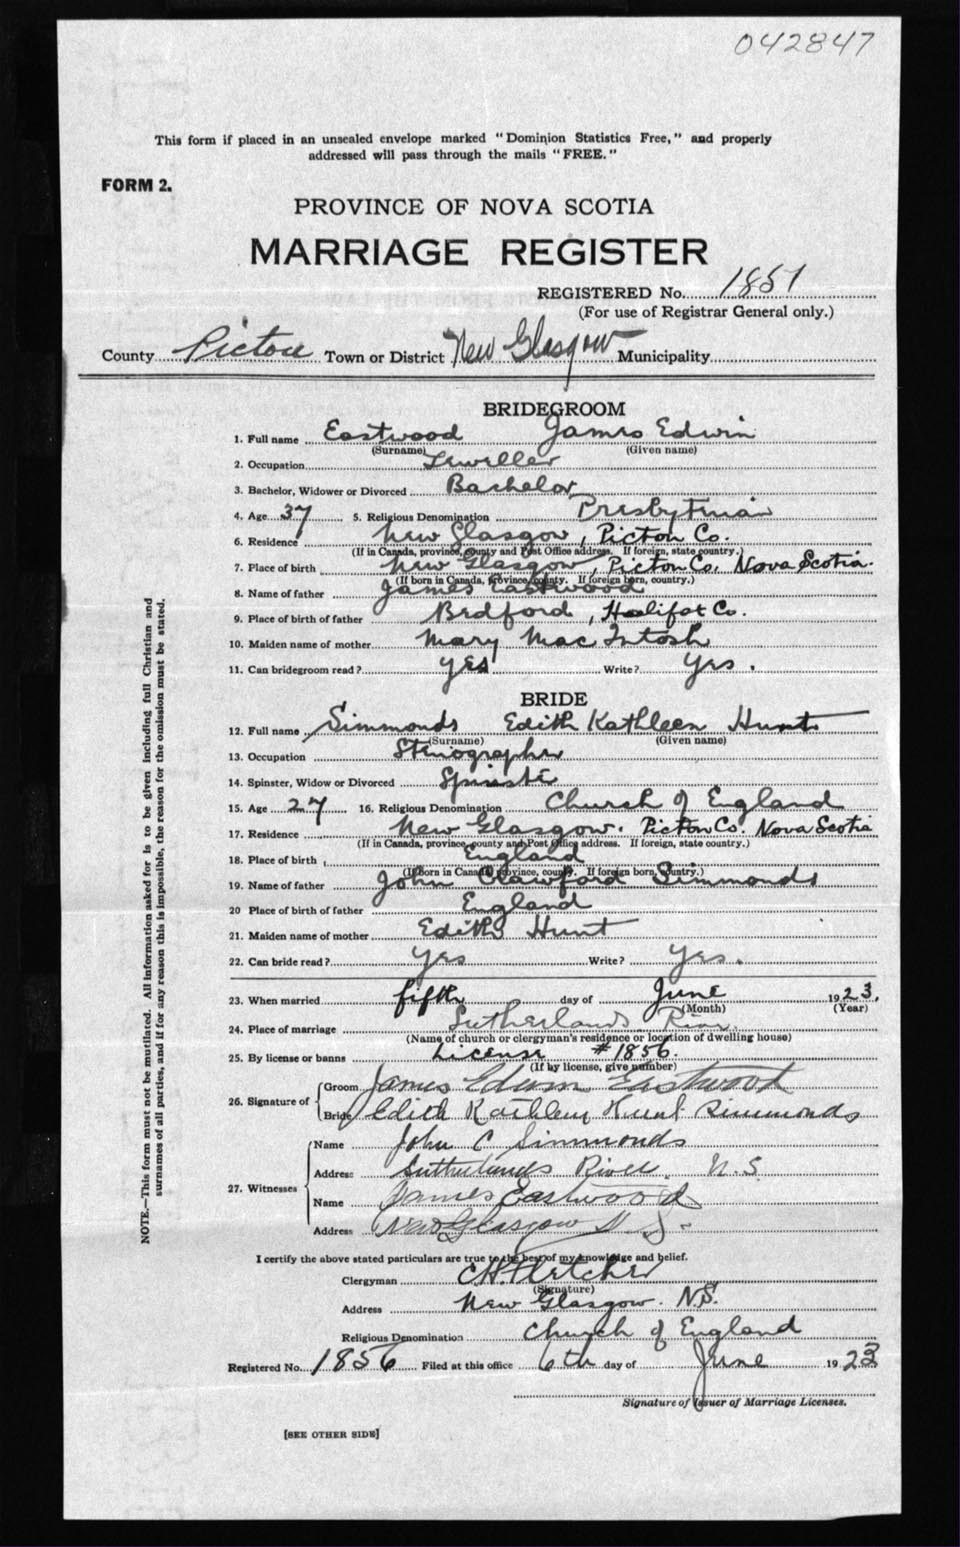 042847
This form if placed in an unsealed envelope marked "Dominion Statistics Free," and properly
addressed will pass through the mails "FREE."
FORM 2.
PROVINCE OF NOVA SCOTIA
MARRIAGE REGISTER
REGISTERED No. 1851
(For use of Registrar General only.)
County Pictou Town or District New Glasgow Municipality
BRIDEGROOM
1. Full name Eastwood James Edwin
(Surname) (Given name)
2. Occupation Jeweller
3. Bachelor, Widower or Divorced Bachelor
4. Age 37 5. Religious Denomination Presbyterian
6. Residence New Glasgow, Pictou Co.
(If in Canada, province, county and Post Office address. If foreign, state country.)
7. Place of birth New Glasgow, Pictou Co, Nova Scotia.
(If born in Canada, province, county. If foreign born, country.)
8. Name of father James Eastwood
9. Place of birth of father Bedford, Halifax Co.
10. Maiden name of mother Mary MacIntosh
11. Can bridegroom read? yes Write? yes.
BRIDE
12. Full name Simmonds Edith Kathleen Hunt
(Surname) (Given name)
13. Occupation Stenographer
14. Spinster, Widow or Divorced Spinster
15. Age 27 16. Religious Denomination Church of England
17. Residence New Glasgow. Pictou Co. Nova Scotia
(If in Canada, province, county and Post Office address. If foreign, state country.)
18. Place of birth England
(If born in Canada, province, county. If foreign born, country.)
19. Name of father John Crawford Simmonds
20 Place of birth of father England
21. Maiden name of mother Edith Hunt
22. Can bride read? Yes Write? Yes.
23. When married fifth day of June 1923.
(Month) (Year)
24. Place of marriage Sutherlands River
(Name of church or clergyman's residence or location of dwelling house)
25. By license or banns License #1856.
(If by license, give number)
26. Signature of Groom James Edwin Eastwood
Bride Edith Kathleen Hunt Simmonds
27. Witnesses Name John C Simmonds
Address Sutherlands River N.S
Name James Eastwood
Address New Glasgow N S
I certify the above stated particulars are true to the best of my knowledge and belief.
Clergyman C.H. Fletcher
(Signature)
Address New Glasgow. N.S.
Religious Denomination Church of England
Registered No. 1856 Filed at this office 6th day of June 1923
Signature of Issuer of Marriage Licenses.
[SEE OTHER SIDE]
NOTE.—This form must not be mutilated. All information asked for is to be given including full Christian and
surnames of all parties, and if for any reason this is impossible, the reason for the omission must be stated.